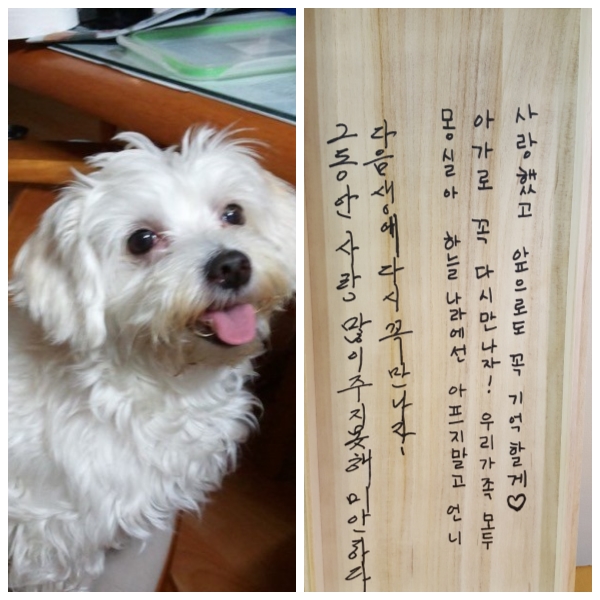 그동안 사랑 많이주지못해 미안하다
다음생에 다시 꼭 만나자.
몽실아 하늘나라에선 아프지말고 언니
아가로 꼭 다시만나자! 우리가족 모두
사랑했고 앞으로도 꼭 기억할게♡